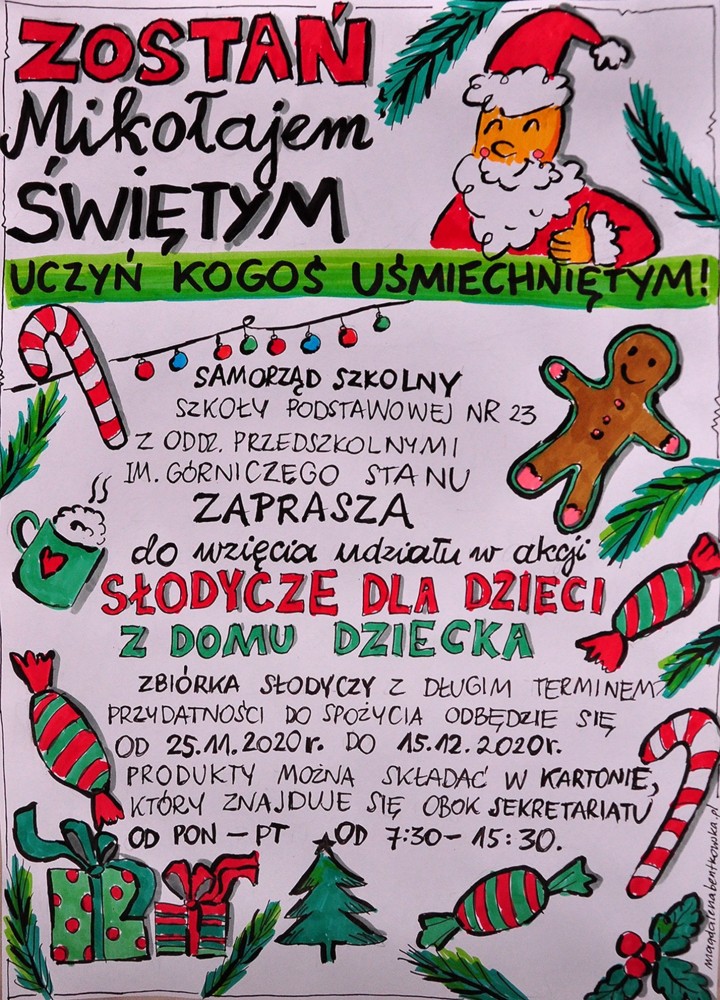 ZOSTAŃ
Mikołajem
ŚWIĘTYM
UCZYŃ KOGOŚ UŚMIECHNIĘTYM!
SAMORZĄD SZKOLNY
SZKOŁY PODSTAWOWEJ NR 23
Z ODDZ. PRZEDSZKOLNYMI
IM. GÓRNICZEGO STANU
ZAPRASZA
do wzięcia udziału w akcji
SŁODYCZE DLA DZIECI
Z DOMU DZIECKA
ZBIÓRKA SŁODYCZY Z DŁUGIM TERMINEM
PRZYDATNOŚCI DO SPOŻYCIA ODBĘDZIE SIĘ
OD 25.11.2020r. DO 15.12.2020r.
PRODUKTY MOŻNA SKŁADAĆ W KARTONIE,
KTÓRY ZNAJDUJE SIĘ OBOK SEKRETARIATU
OD PON – PT OD 7:30 – 15:30.
magdalenabentkowska.pl